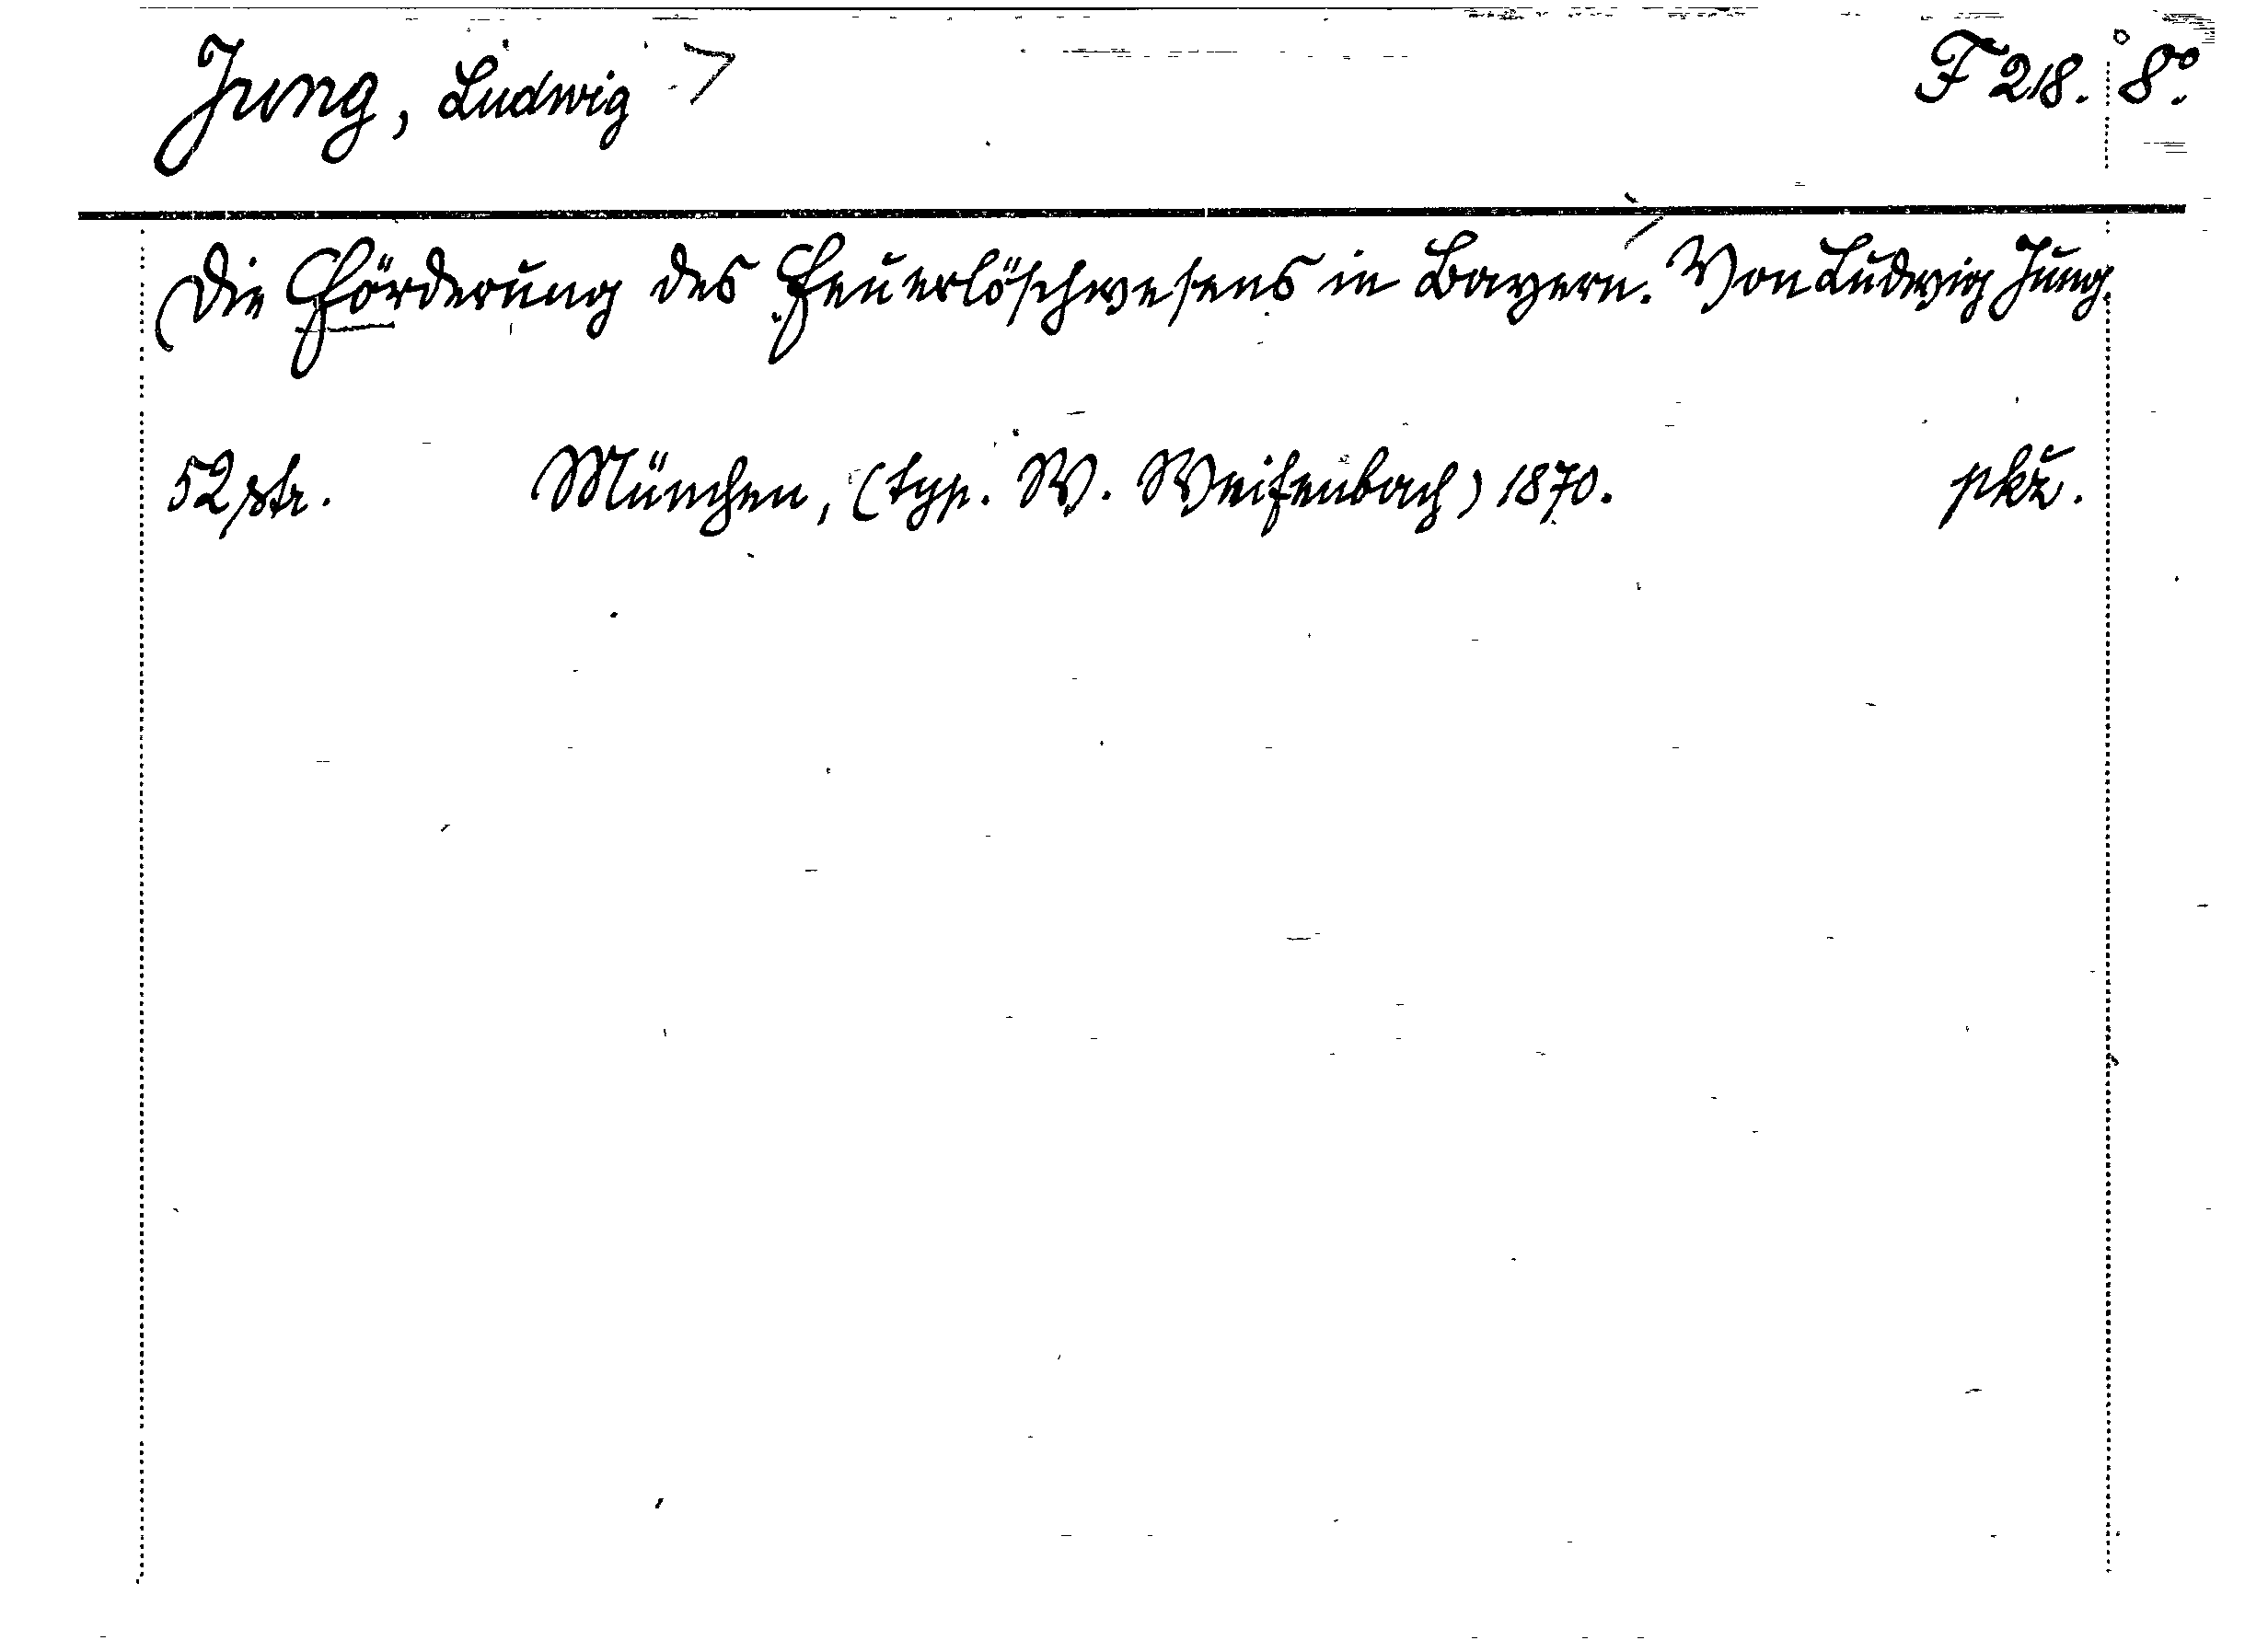 Jung, Ludwig F 218. 8°.
Die Förderung des Feuerlöschwesens in Bayern. Von Ludwig Jung.
52 str. München, (typ. W. Weifenbach) 1870.